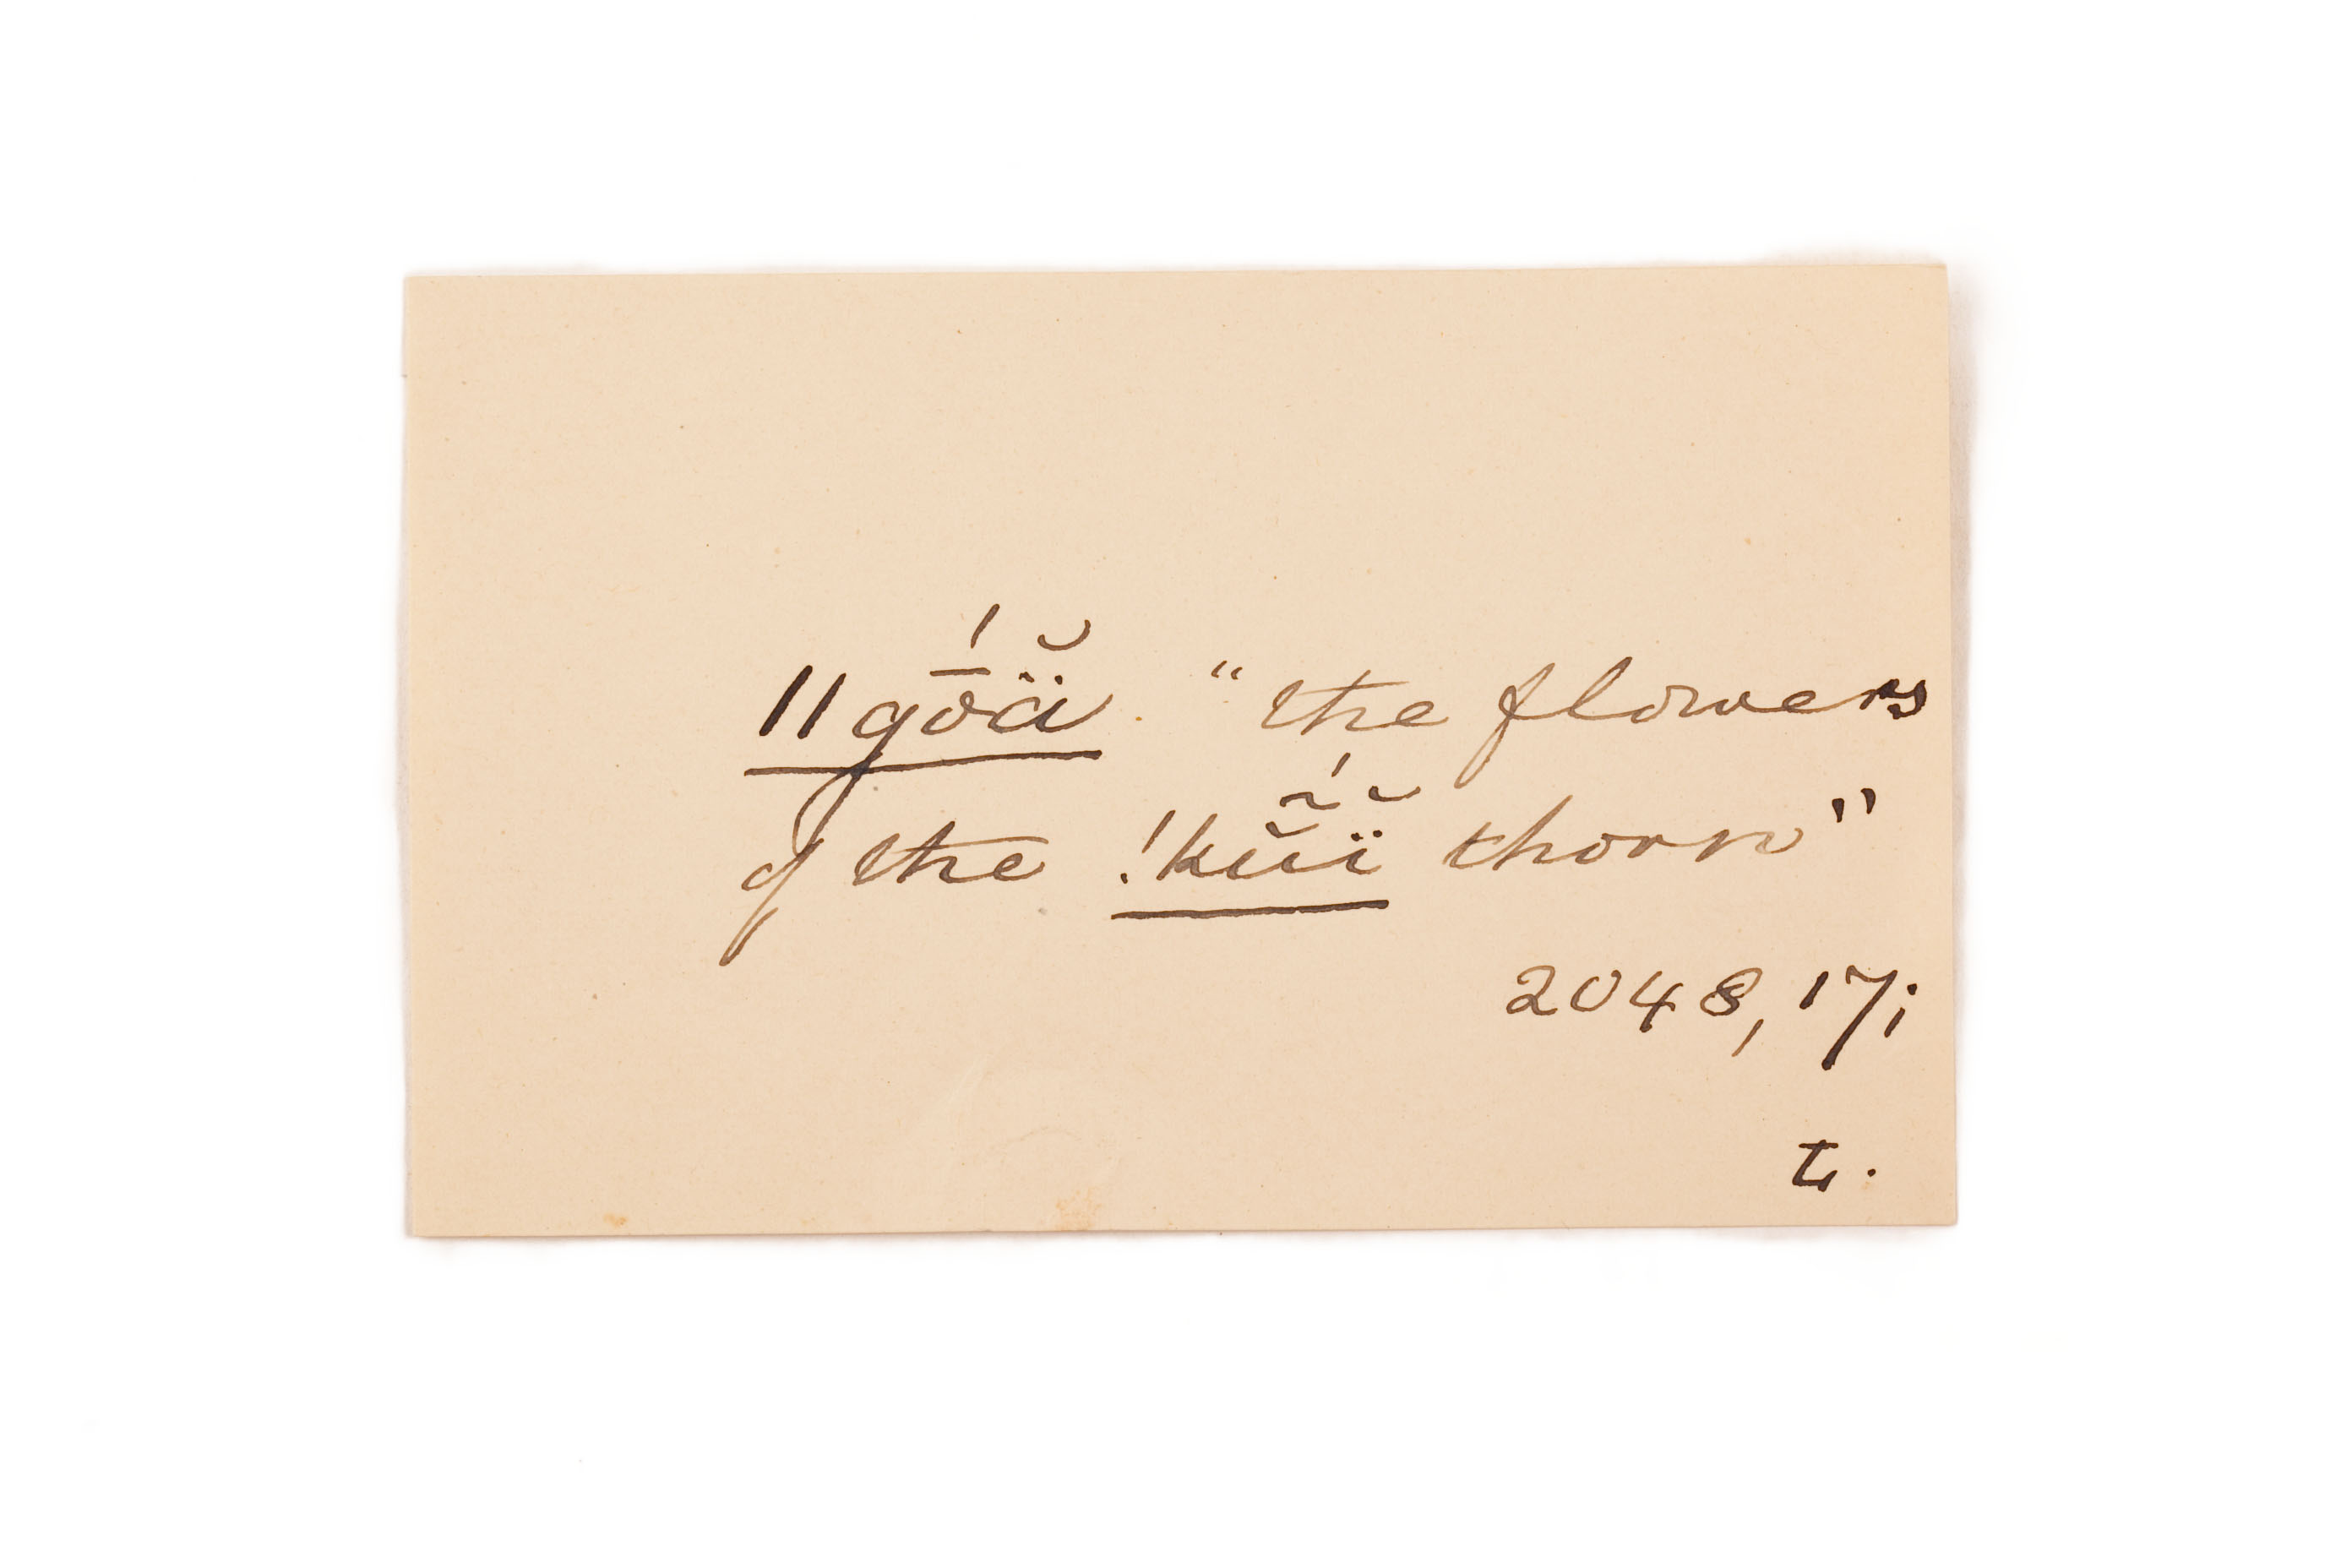 ǁgṓä̆ "the flowers
of the !kŭ̃́ï̆ thorn"
2048, 17;
L.